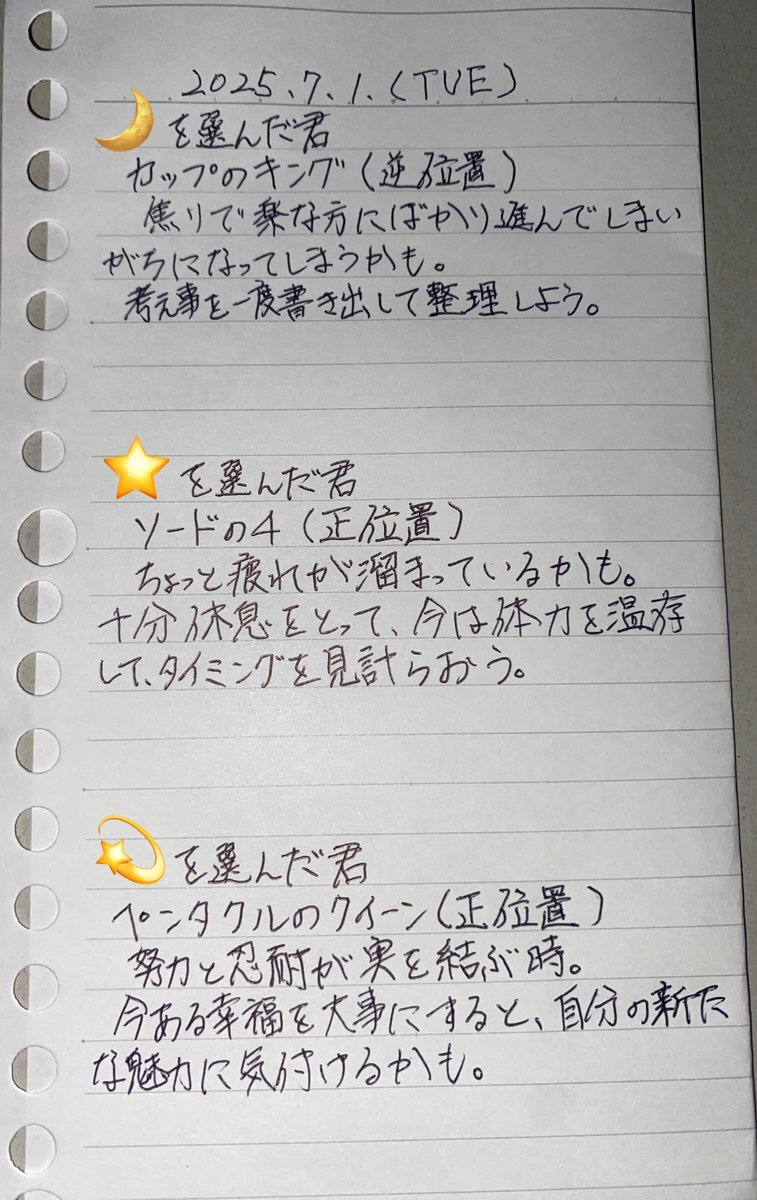 2025.7.1.(TUE)
🌙を選んだ君
カップのキング(逆位置)
焦りで楽な方にばかり進んでしまい
がちになってしまうかも。
考え事を一度書き出して整理しよう。
⭐を選んだ君
ソードの4(正位置)
ちょっと疲れが溜まっているかも。
十分休息をとって、今は体力を温存
して、タイミングを見計らおう。
💫を選んだ君
ペンタクルのクイーン(正位置)
努力と忍耐が実を結ぶ時。
今ある幸福を大事にすると、自分の新た
な魅力に気付けるかも。